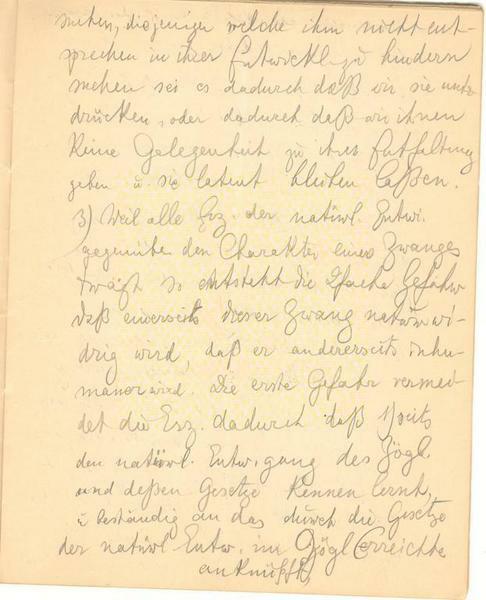 suchen, diejenigen welche ihm nicht ent-
sprechen in ihrer Entwickl. zu hindern
suchen sei es dadurch daß wir sie unter-
drücken, oder dadurch daß wir ihnen
keine Gelegenheit zu ihrer Entfaltung
geben u. sie latent bleiben laßen.
3) Weil alle Erz. der natürl. Entwi.
gegenüber den Charakter eines Zwanges
trägt so entsteht die 2fache Gefahr
daß einerseits dieser Zwang naturwi-
drig wird, daß er andererseits inhu-
maner wird. Die erste Gefahr vermei-
det die Erz. dadurch daß 1) seits
den natürl. Entw.gang des Zögl.
und deßen Gesetze kennen lernt,
u. beständig an das durch die Gesetze
der natürl Entw. im Zögl Erreichte
anknüpft,